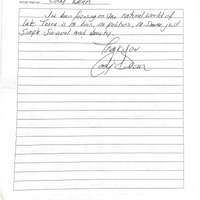 Artist Name: Cody Dean
I've been focusing on the natural world of
late. There is no bias, no politics, no shame just
simple survival and beauty.
Thank you
Cody Dean